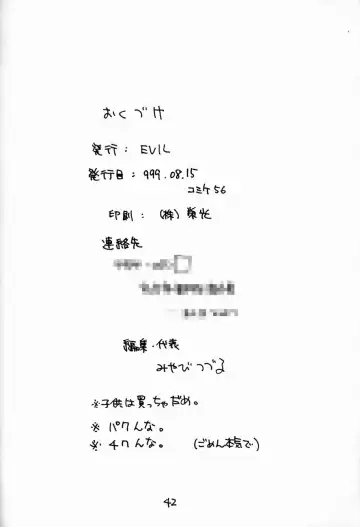 おくづけ
発行: EVIL
発行日: 999.08.15
コミケ56
印刷: (株)栄光
連絡先
編集・代表
みやびつづる
※子供は買っちゃだめ。
※パクんな。
※チクんな。 (ごめん本気で)
42